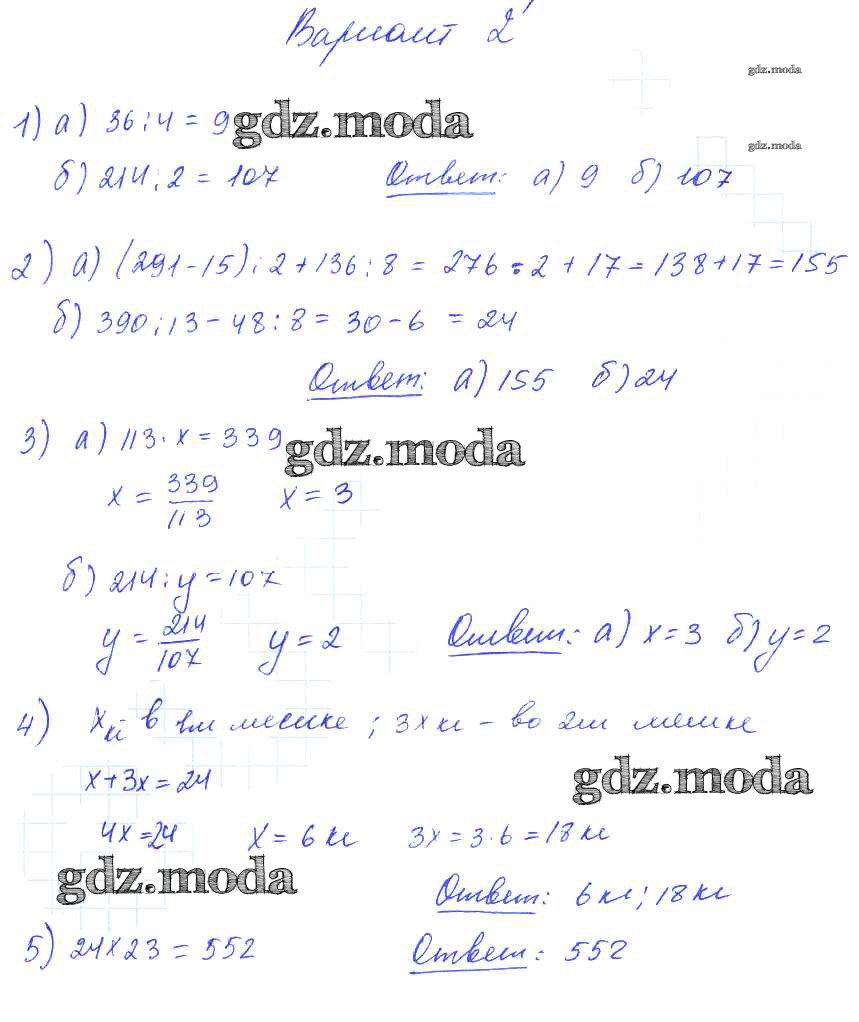 Вариант 2
gdz.moda
1) а) 36 : 4 = 9
gdz.moda
gdz.moda
б) 214 : 2 = 107 Ответ: а) 9 б) 107
2) а) (291 - 15) : 2 + 136 : 8 = 276 : 2 + 17 = 138 + 17 = 155
б) 390 : 13 - 48 : 8 = 30 - 6 = 24
Ответ: а) 155 б) 24
3) а) 113 · x = 339
gdz.moda
x = 339/113 x = 3
б) 214 : y = 107
y = 214/107 y = 2 Ответ: а) x = 3 б) y = 2
4) x кг в 1м мешке ; 3x кг - во 2м мешке
x + 3x = 24
gdz.moda
4x = 24 x = 6 кг 3x = 3 · 6 = 18 кг
gdz.moda
Ответ: 6 кг ; 18 кг
5) 24 x 23 = 552 Ответ: 552